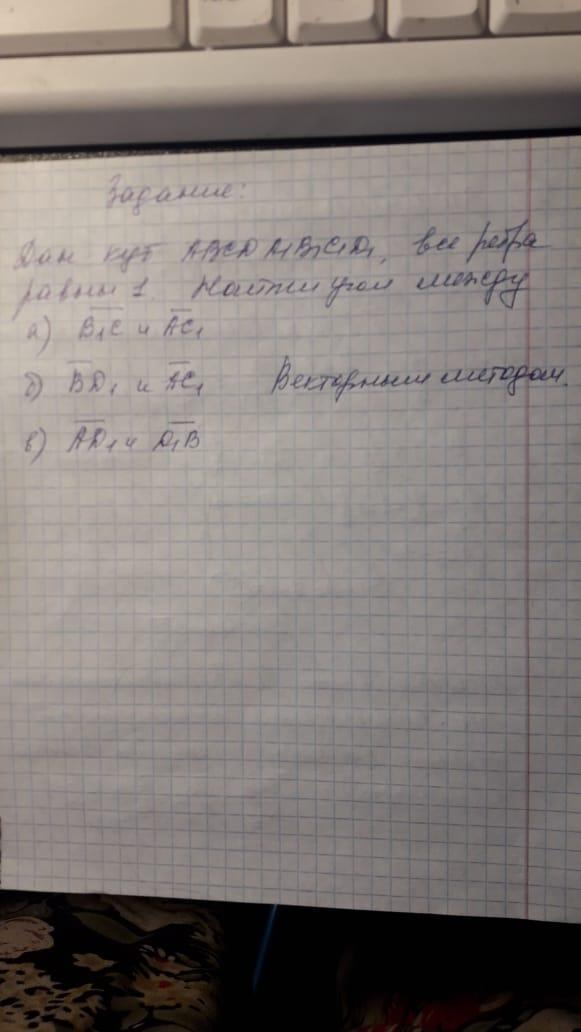 Задание:
Дан куб ABCDA₁B₁C₁D₁, все ребра
равны 1. Найти угол между
а) B₁C и AC₁
б) BD₁ и AC₁ Векторным методом.
в) AD₁ и D₁B